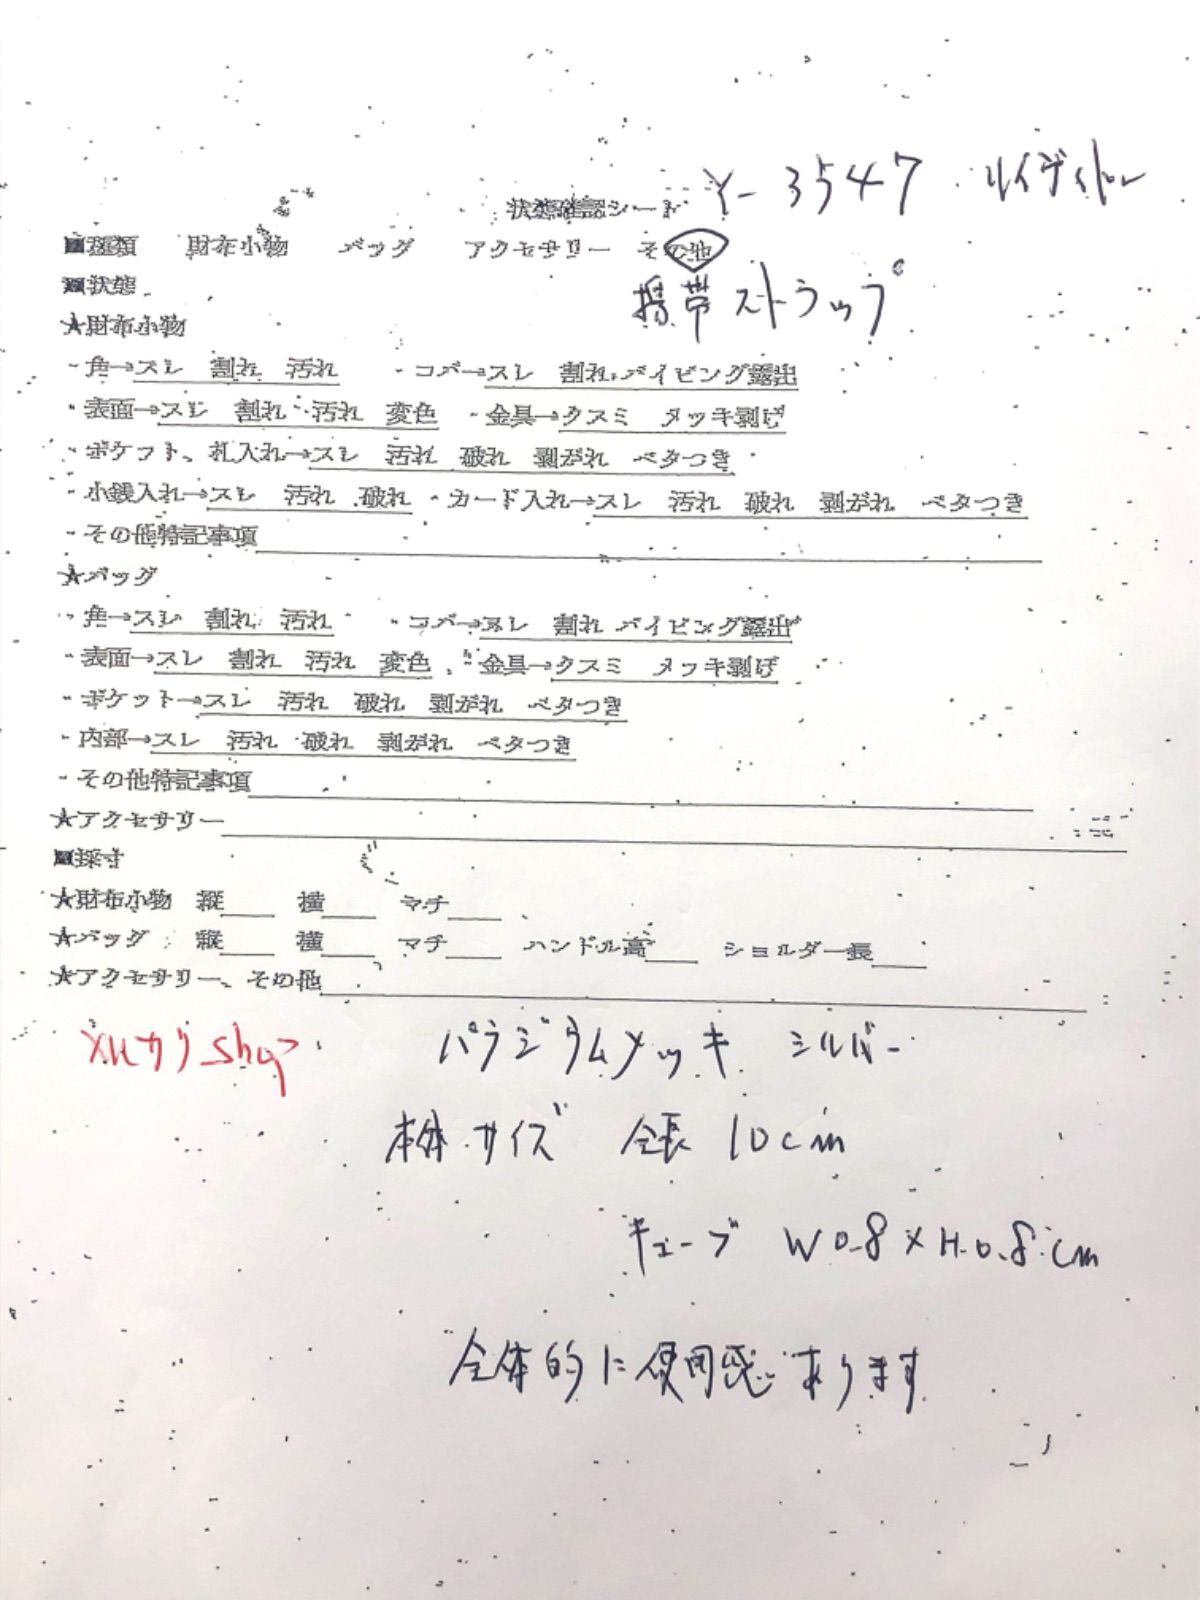 Y-3547 ルイヴィトン
状態確認シート
■種類 財布小物 バッグ アクセサリー その他
■状態
携帯ストラップ
★財布小物
・角→スレ 割れ 汚れ ・コバ→スレ 割れ パイピング露出
・表面→スレ 割れ 汚れ 変色 ・金具→クスミ メッキ剥げ
・ポケット、札入れ→スレ 汚れ 破れ 剥がれ ベタつき
・小銭入れ→スレ 汚れ 破れ ・カード入れ→スレ 汚れ 破れ 剥がれ ベタつき
・その他特記事項
★バッグ
・角→スレ 割れ 汚れ ・コバ→スレ 割れ パイピング露出
・表面→スレ 割れ 汚れ 変色 ・金具→クスミ メッキ剥げ
・ポケット→スレ 汚れ 破れ 剥がれ ベタつき
・内部→スレ 汚れ 破れ 剥がれ ベタつき
・その他特記事項
★アクセサリー
■採寸
★財布小物 縦 横 マチ
★バッグ 縦 横 マチ ハンドル高 ショルダー長
★アクセサリー、その他
メルカリshop パラジウムメッキ シルバー
本体サイズ 全長 10cm
キューブ W0.8×H.0.8cm
全体的に使用感あります